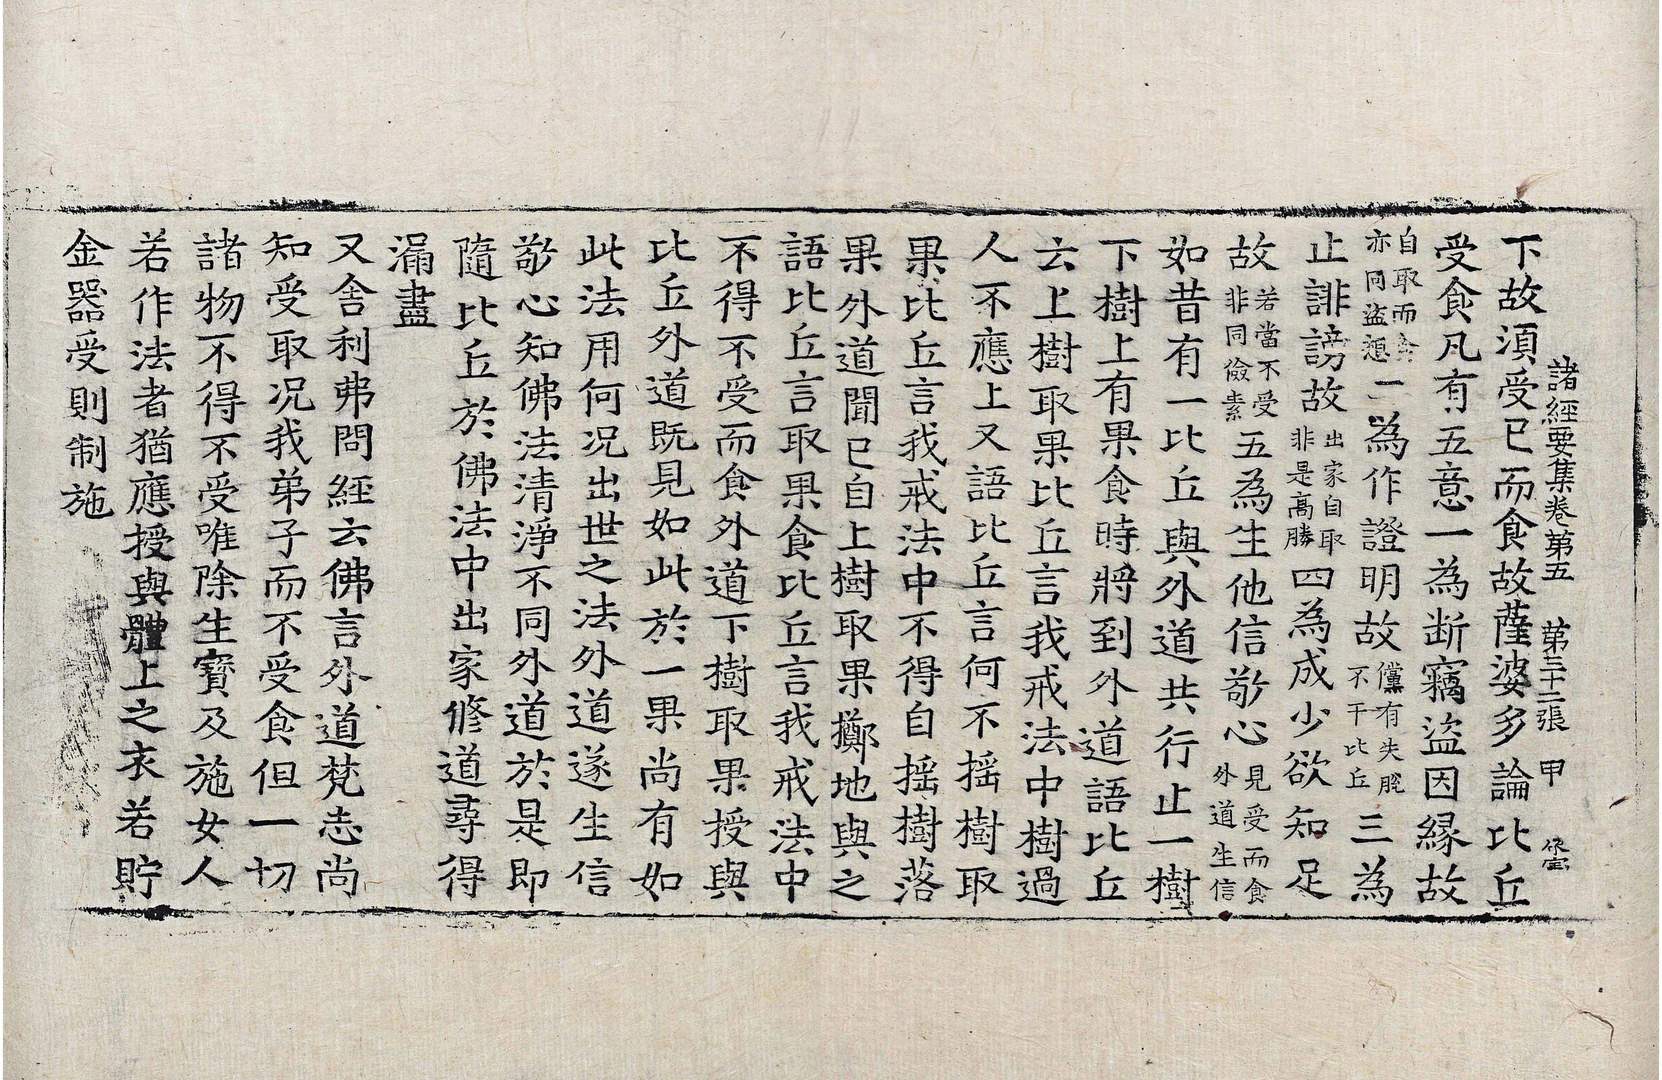 諸經要集卷第五　第三十二張　甲
下故湏受已而食故薩婆多論比丘
受食凡有五意一為断竊盜因縁故
自取而食亦同盜類二為作證明故儻有失脫不干比丘三為
止誹謗故出家自取非是高勝四為成少欲知足
故若當不受非同儉素五為生他信敬心見受而食外道生信
如昔有一比丘與外道共行止一樹
下樹上有果食時將到外道語比丘
云上樹取果比丘言我戒法中樹過
人不應上又語比丘言何不搖樹取
果比丘言我戒法中不得自搖樹落
果外道聞已自上樹取果擲地與之
語比丘言取果食比丘言我戒法中
不得不受而食外道下樹取果授與
比丘外道既見如此於一果尚有如
此法用何況出世之法外道遂生信
敬心知佛法清淨不同外道於是即
隨比丘於佛法中出家修道尋得
漏盡
又舍利弗問經云佛言外道梵志尚
知受取况我弟子而不受食但一切
諸物不得不受唯除生寶及施女人
若作法者猶應授與體上之衣若貯
金器受則制施